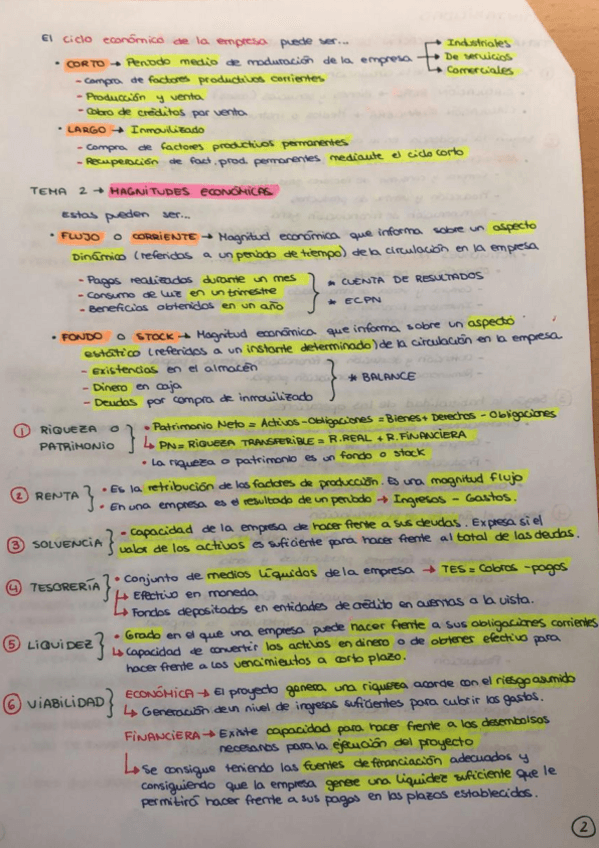 El ciclo económico de la empresa puede ser...
• CORTO → Periodo medio de maduración de la empresa → Industriales
→ De servicios
→ Comerciales
- Compra de factores productivos corrientes
- Producción y venta
- Cobro de créditos por venta
• LARGO → Inmovilizado
- Compra de factores productivos permanentes
- Recuperación de fact. prod. permanentes mediante el ciclo corto
TEMA 2 → MAGNITUDES ECONÓMICAS
Estas pueden ser...
• FLUJO O CORRIENTE → Magnitud económica que informa sobre un aspecto
dinámico (referidos a un periodo de tiempo) de la circulación en la empresa
- Pagos realizados durante un mes
- Consumo de luz en un trimestre
- Beneficios obtenidos en un año
* CUENTA DE RESULTADOS
* ECPN
• FONDO O STOCK → Magnitud económica que informa sobre un aspecto
estático (referidos a un instante determinado) de la circulación en la empresa
- Existencias en el almacén
- Dinero en caja
- Deudas por compra de inmovilizado
* BALANCE
① RIQUEZA O
PATRIMONIO
• Patrimonio Neto = Activos - Obligaciones = Bienes + Derechos - Obligaciones
↳ PN = RIQUEZA TRANSFERIBLE = R. REAL + R. FINANCIERA
• La riqueza o patrimonio es un fondo o stock
② RENTA
• Es la retribución de los factores de producción. Es una magnitud flujo
• En una empresa es el resultado de un periodo → Ingresos - Gastos.
③ SOLVENCIA
• Capacidad de la empresa de hacer frente a sus deudas. Expresa si el
valor de los activos es suficiente para hacer frente al total de las deudas.
④ TESORERÍA
• Conjunto de medios líquidos de la empresa → TES = Cobros - pagos
↳ Efectivo en moneda
↳ Fondos depositados en entidades de crédito en cuentas a la vista.
⑤ LIQUIDEZ
• Grado en el que una empresa puede hacer frente a sus obligaciones corrientes
↳ Capacidad de convertir los activos en dinero o de obtener efectivo para
hacer frente a los vencimientos a corto plazo.
⑥ VIABILIDAD
ECONÓMICA → El proyecto genera una riqueza acorde con el riesgo asumido
↳ Generación de un nivel de ingresos suficientes para cubrir los gastos.
FINANCIERA → Existe capacidad para hacer frente a los desembolsos
necesarios para la ejecución del proyecto
↳ Se consigue teniendo las fuentes de financiación adecuados y
consiguiendo que la empresa genere una liquidez suficiente que le
permitirá hacer frente a sus pagos en los plazos establecidos.
②